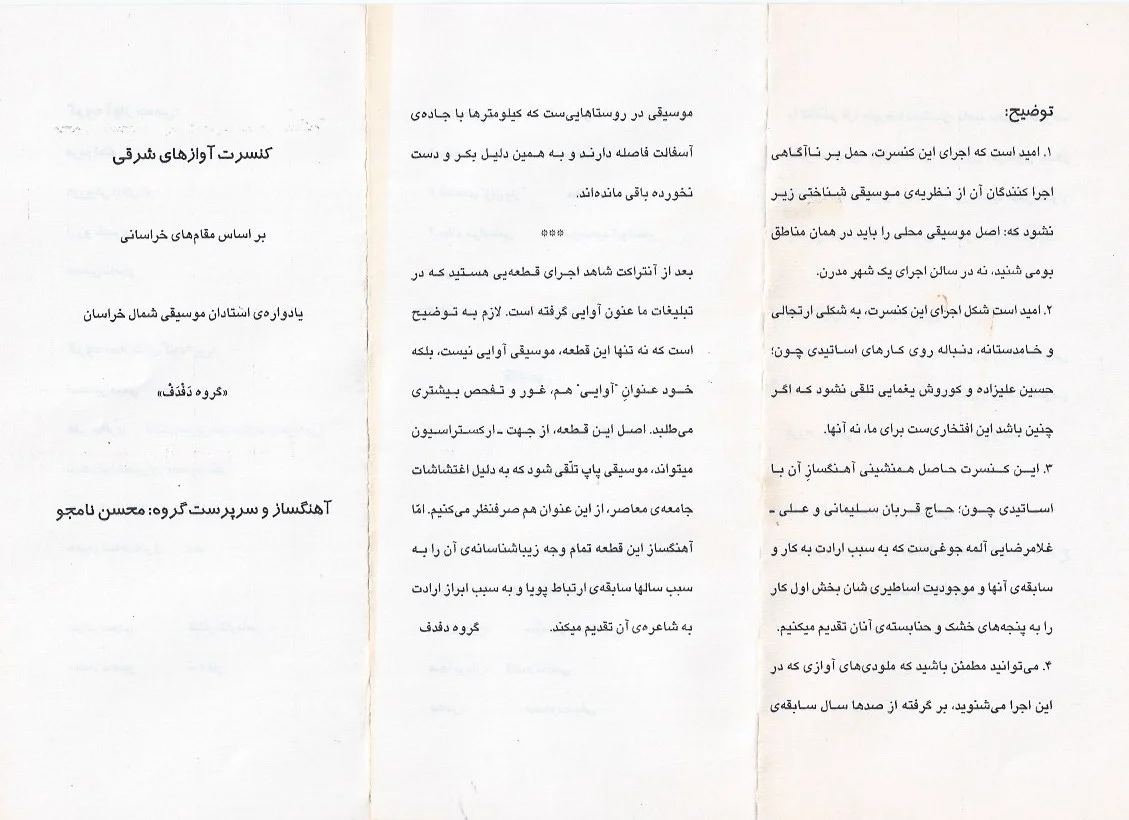 توضیح:
۱. امید است که اجرای این کنسرت، حمل بر ناآگاهی
اجرا کنندگان آن از نظریه‌ی موسیقی شناختی زیر
نشود که: اصل موسیقی محلی را باید در همان مناطق
بومی شنید، نه در سالن اجرای یک شهر مدرن.
۲. امید است شکل اجرای این کنسرت، به شکلی ارتجالی
و خامدستانه، دنباله روی کارهای اساتیدی چون؛
حسین علیزاده و کوروش یغمایی تلقی نشود که اگر
چنین باشد این افتخاری‌ست برای ما، نه آنها.
۳. این کنسرت حاصل همنشینی آهنگسازِ آن با
اساتیدی چون؛ حاج قربان سلیمانی و علی ـ
غلامرضایی آلمه جوغی‌ست که به سبب ارادت به کار و
سابقه‌ی آنها و موجودیت اساطیری شان بخش اول کار
را به پنجه‌های خشک و حنابسته‌ی آنان تقدیم میکنیم.
۴. می‌توانید مطمئن باشید که ملودی‌های آوازی که در
این اجرا می‌شنوید، بر گرفته از صدها سال سابقه‌ی
موسیقی در روستاهایی‌ست که کیلومترها با جاده‌ی
آسفالت فاصله دارند و به همین دلیل بکر و دست
نخورده باقی مانده‌اند.
***
بعد از آنتراکت شاهد اجرای قطعه‌یی هستید که در
تبلیغات ما عنون آوایی گرفته است. لازم به توضیح
است که نه تنها این قطعه، موسیقی آوایی نیست، بلکه
خود عنوانِ "آوایی" هم، غور و تفحص بیشتری
می‌طلبد. اصل این قطعه، از جهت ـ ارکستراسیون
میتواند، موسیقی پاپ تلّقی شود که به دلیل اغتشاشات
جامعه‌ی معاصر، از این عنوان هم صرفنظر می‌کنیم. امّا
آهنگساز این قطعه تمام وجه زیباشناسانه‌ی آن را به
سبب سالها سابقه‌ی ارتباط پویا و به سبب ابراز ارادت
به شاعره‌ی آن تقدیم میکند. گروه دفدف
کنسرت آوازهای شرقی
بر اساس مقام‌های خراسانی
یادواره‌ی استادان موسیقی شمال خراسان
«گروه دَفْدَفْ»
آهنگساز و سرپرست گروه: محسن نامجو